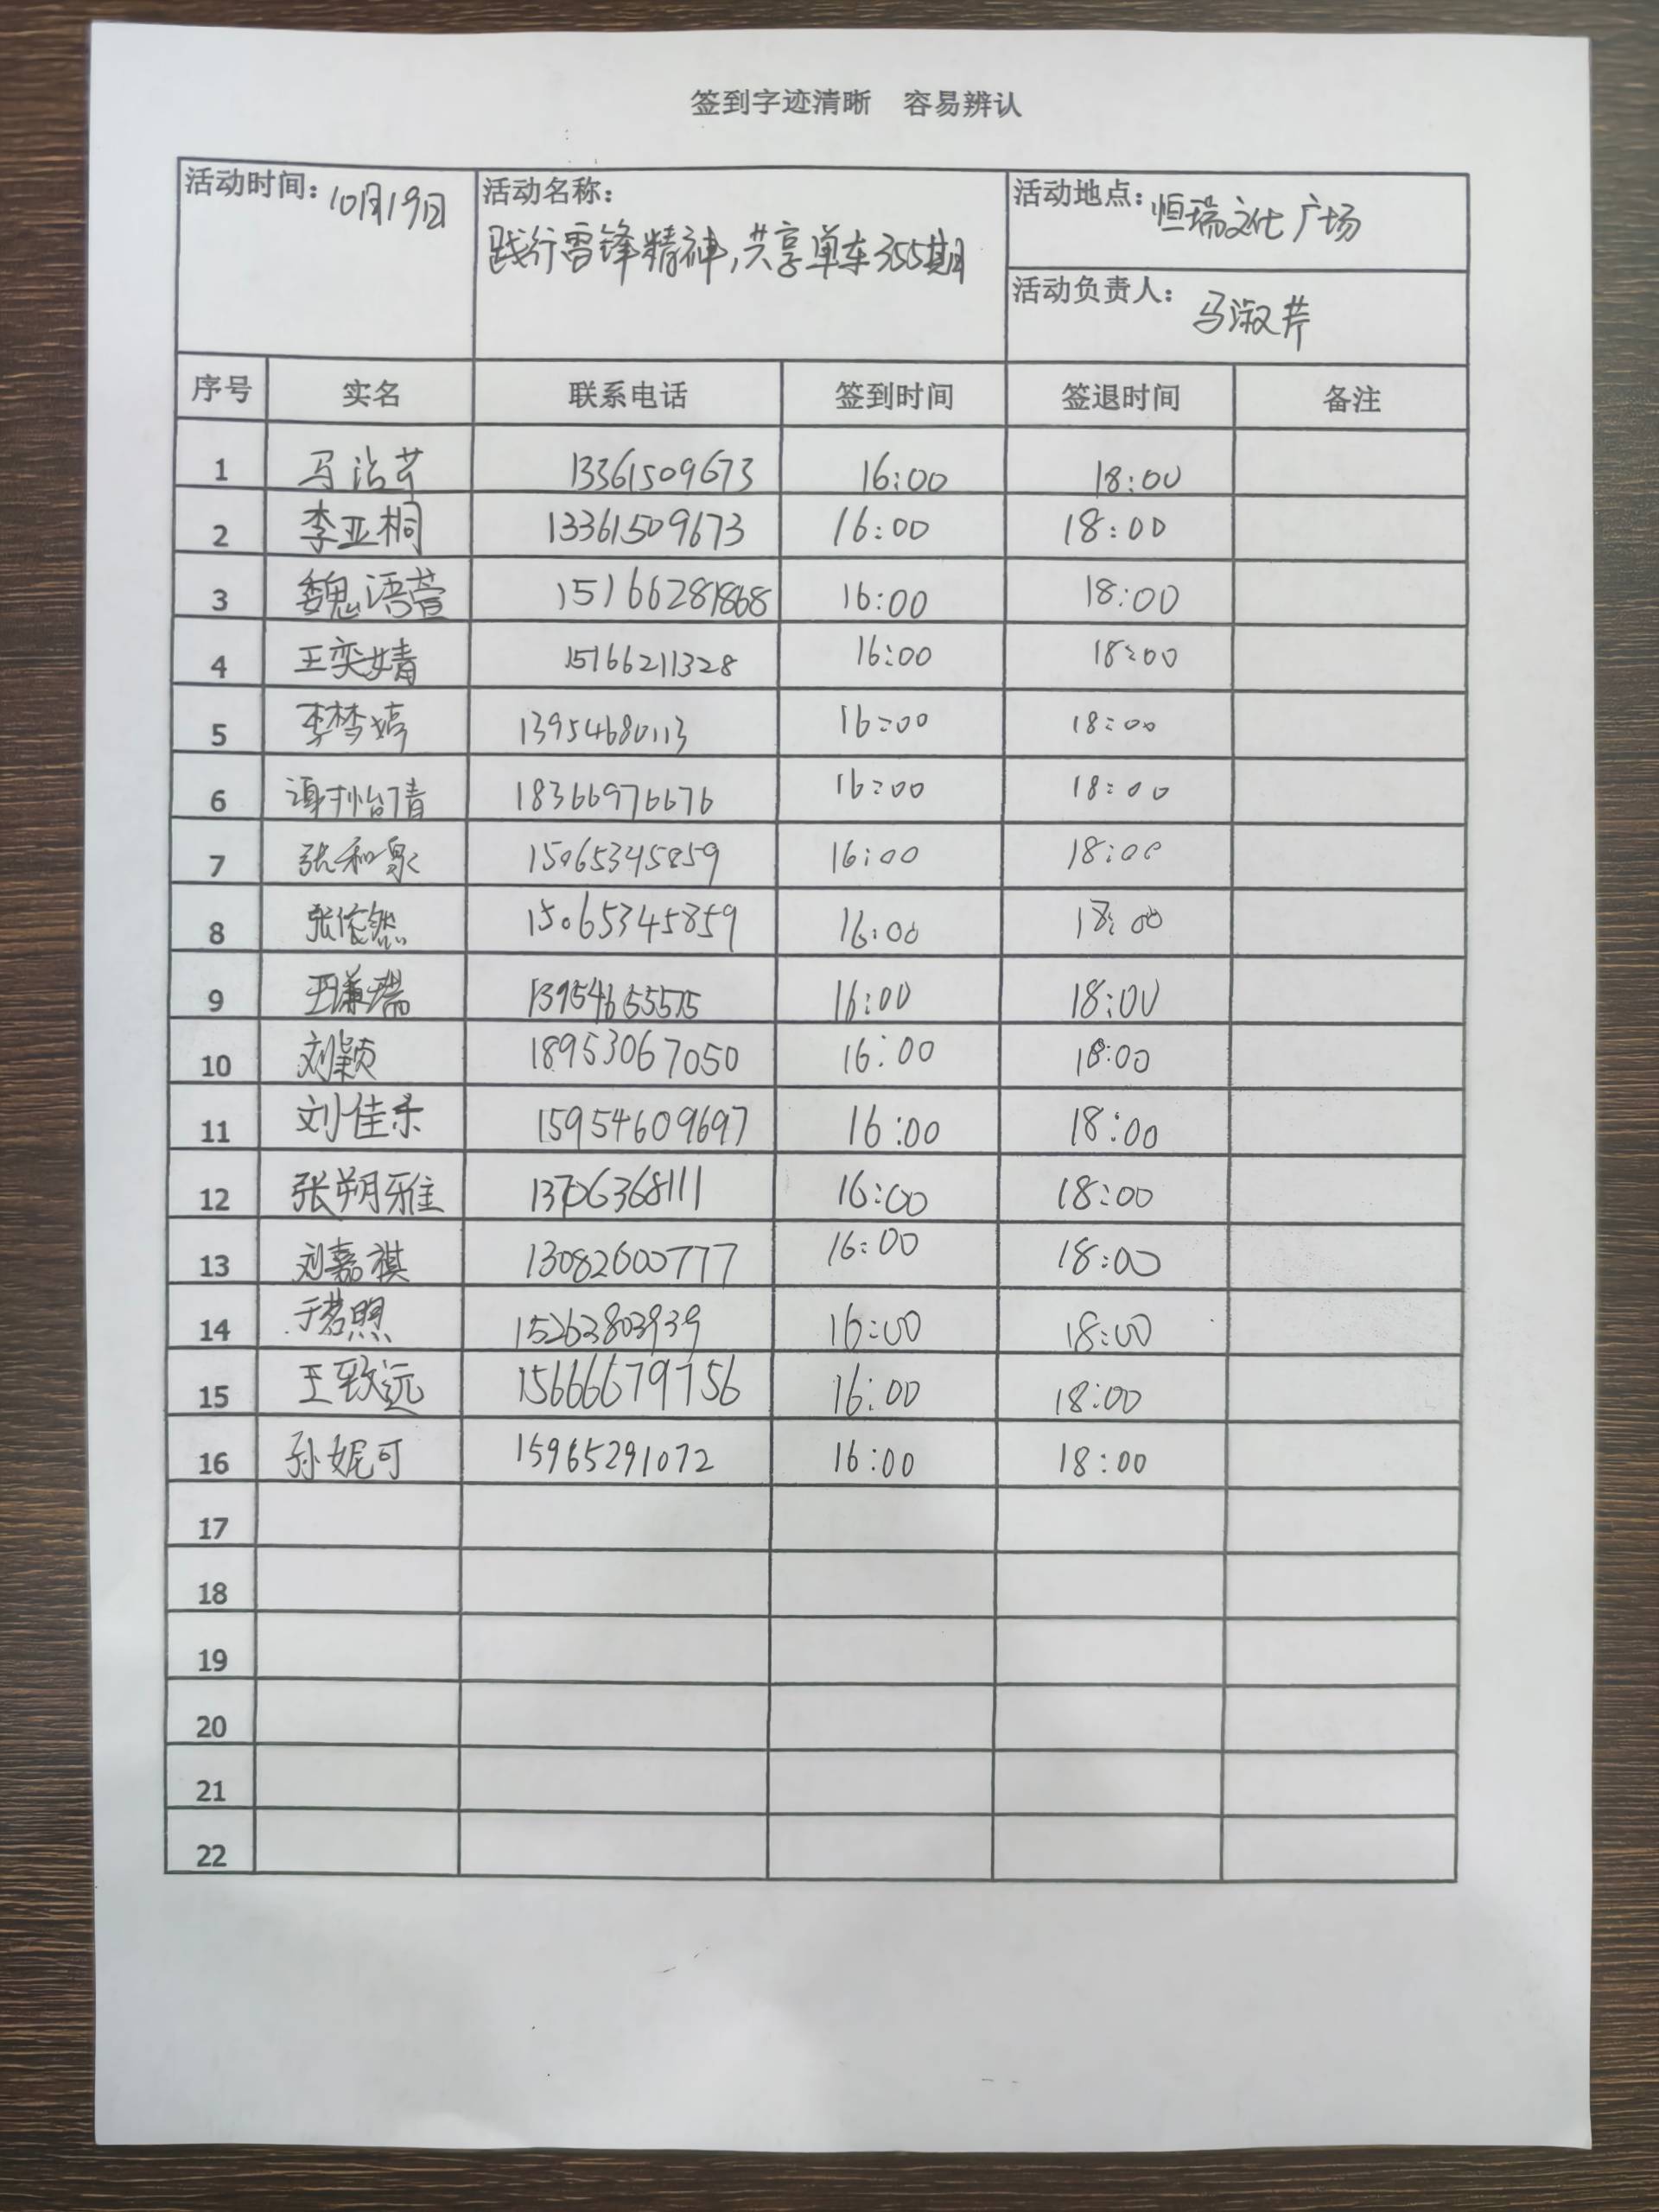 签到字迹清晰 容易辨认
活动时间：10月19日
活动名称：
践行雷锋精神，共享单车355期
活动地点：恒瑞文化广场
活动负责人：马淑芹
序号 实名 联系电话 签到时间 签退时间 备注
1 马沾芹 13361509673 16:00 18:00
2 李亚桐 13361509673 16:00 18:00
3 魏语萱 15166281868 16:00 18:00
4 王奕婧 15166211328 16:00 18:00
5 李梦婷 13954680113 16:00 18:00
6 谢怡倩 18366976676 16:00 18:00
7 张和泉 15065345859 16:00 18:00
8 张依然 15065345859 16:00 18:00
9 王谦瑞 13954655575 16:00 18:00
10 刘颖 18953067050 16:00 18:00
11 刘佳乐 15954609697 16:00 18:00
12 张朔雅 13706368111 16:00 18:00
13 刘嘉祺 13082600777 16:00 18:00
14 于若照 15263803939 16:00 18:00
15 王致远 15666679756 16:00 18:00
16 孙妮可 15965291072 16:00 18:00
17
18
19
20
21
22